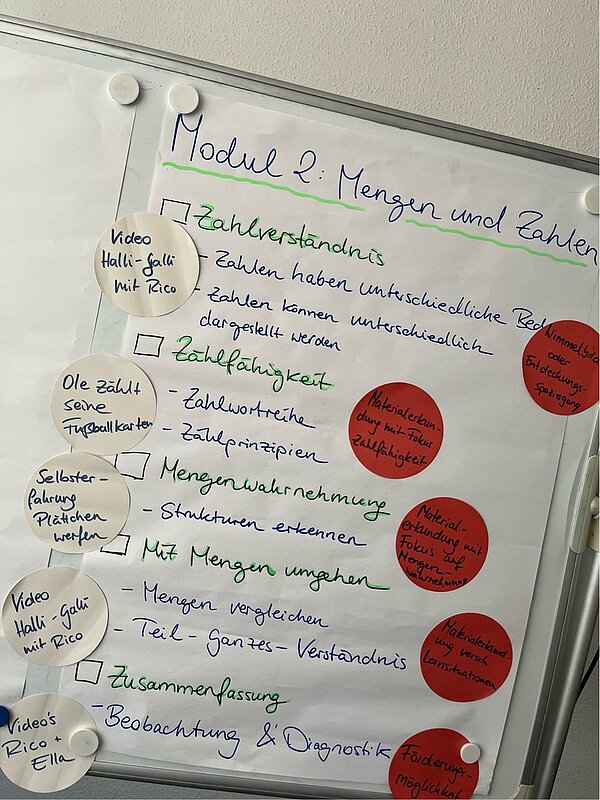 Modul 2: Mengen und Zahlen
Zahlverständnis
Video
Halli-Galli
mit Rico
- Zahlen haben unterschiedliche Bed
- Zahlen können unterschiedlich
dargestellt werden
Wimmelbild
oder
Entdeckungs-
spaziergang
Zählfähigkeit
Ole zählt
seine
Fußballkarten
- Zahlwortreihe
- Zählprinzipien
Materialerkun-
dung mit Fokus
Zählfähigkeit
Mengenwahrnehmung
Selbster-
fahrung
Plättchen
werfen
- Strukturen erkennen
Material-
erkundung mit
Fokus auf
Mengen-
wahrnehmung
Mit Mengen umgehen
Video
Halli-Galli
mit Rico
- Mengen vergleichen
- Teil-Ganzes-Verständnis
Materialerkund-
ung versch.
Lernsituationen
Zusammenfassung
Video's
Rico +
Ella
- Beobachtung & Diagnostik
Förderungs-
möglichkeit